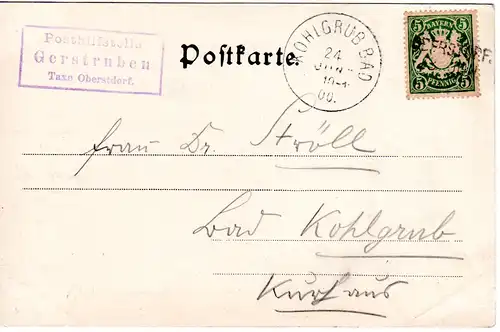 Posthilfstelle
Gerstruben
Taxe Oberstdorf.
Postkarte.
KOHLGRUB BAD
24
10-1
00.
BAYERN
5 5
5 5
PFENNIG
Frau Dr. Ströll
Bad Kohlgrub
Kurhaus